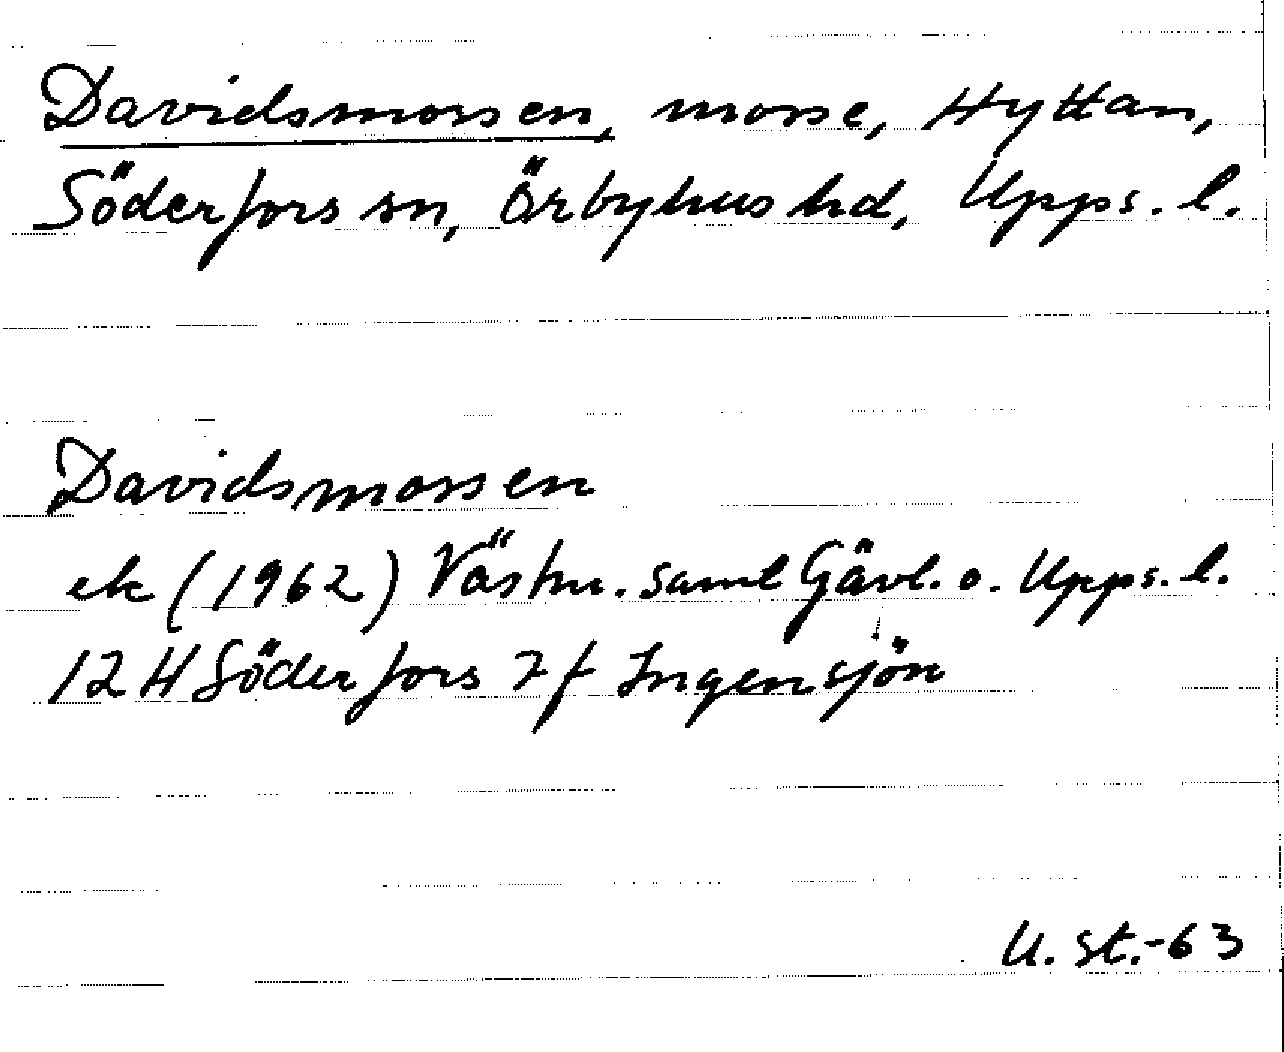 Davidsmossen, mosse, Hyttan,
Söderfors sn, Örbyhus hd, Upps. l.
Davidsmossen
ek (1962) Västm. samt Gävl. o. Upps. l.
12 H Söderfors 7f Ingensjön
U. St.-63